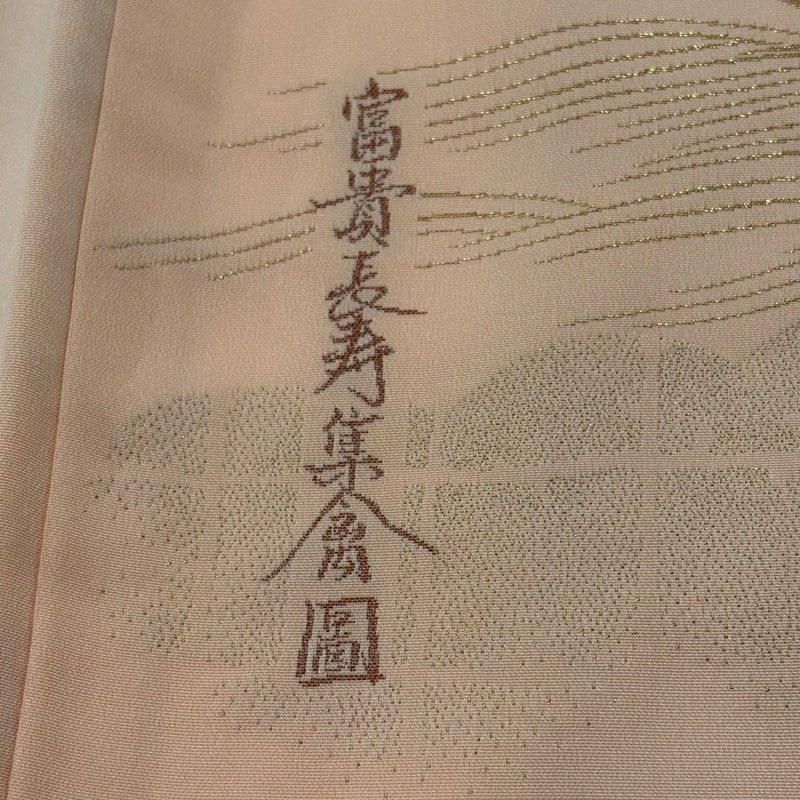 富貴長寿集禽圖